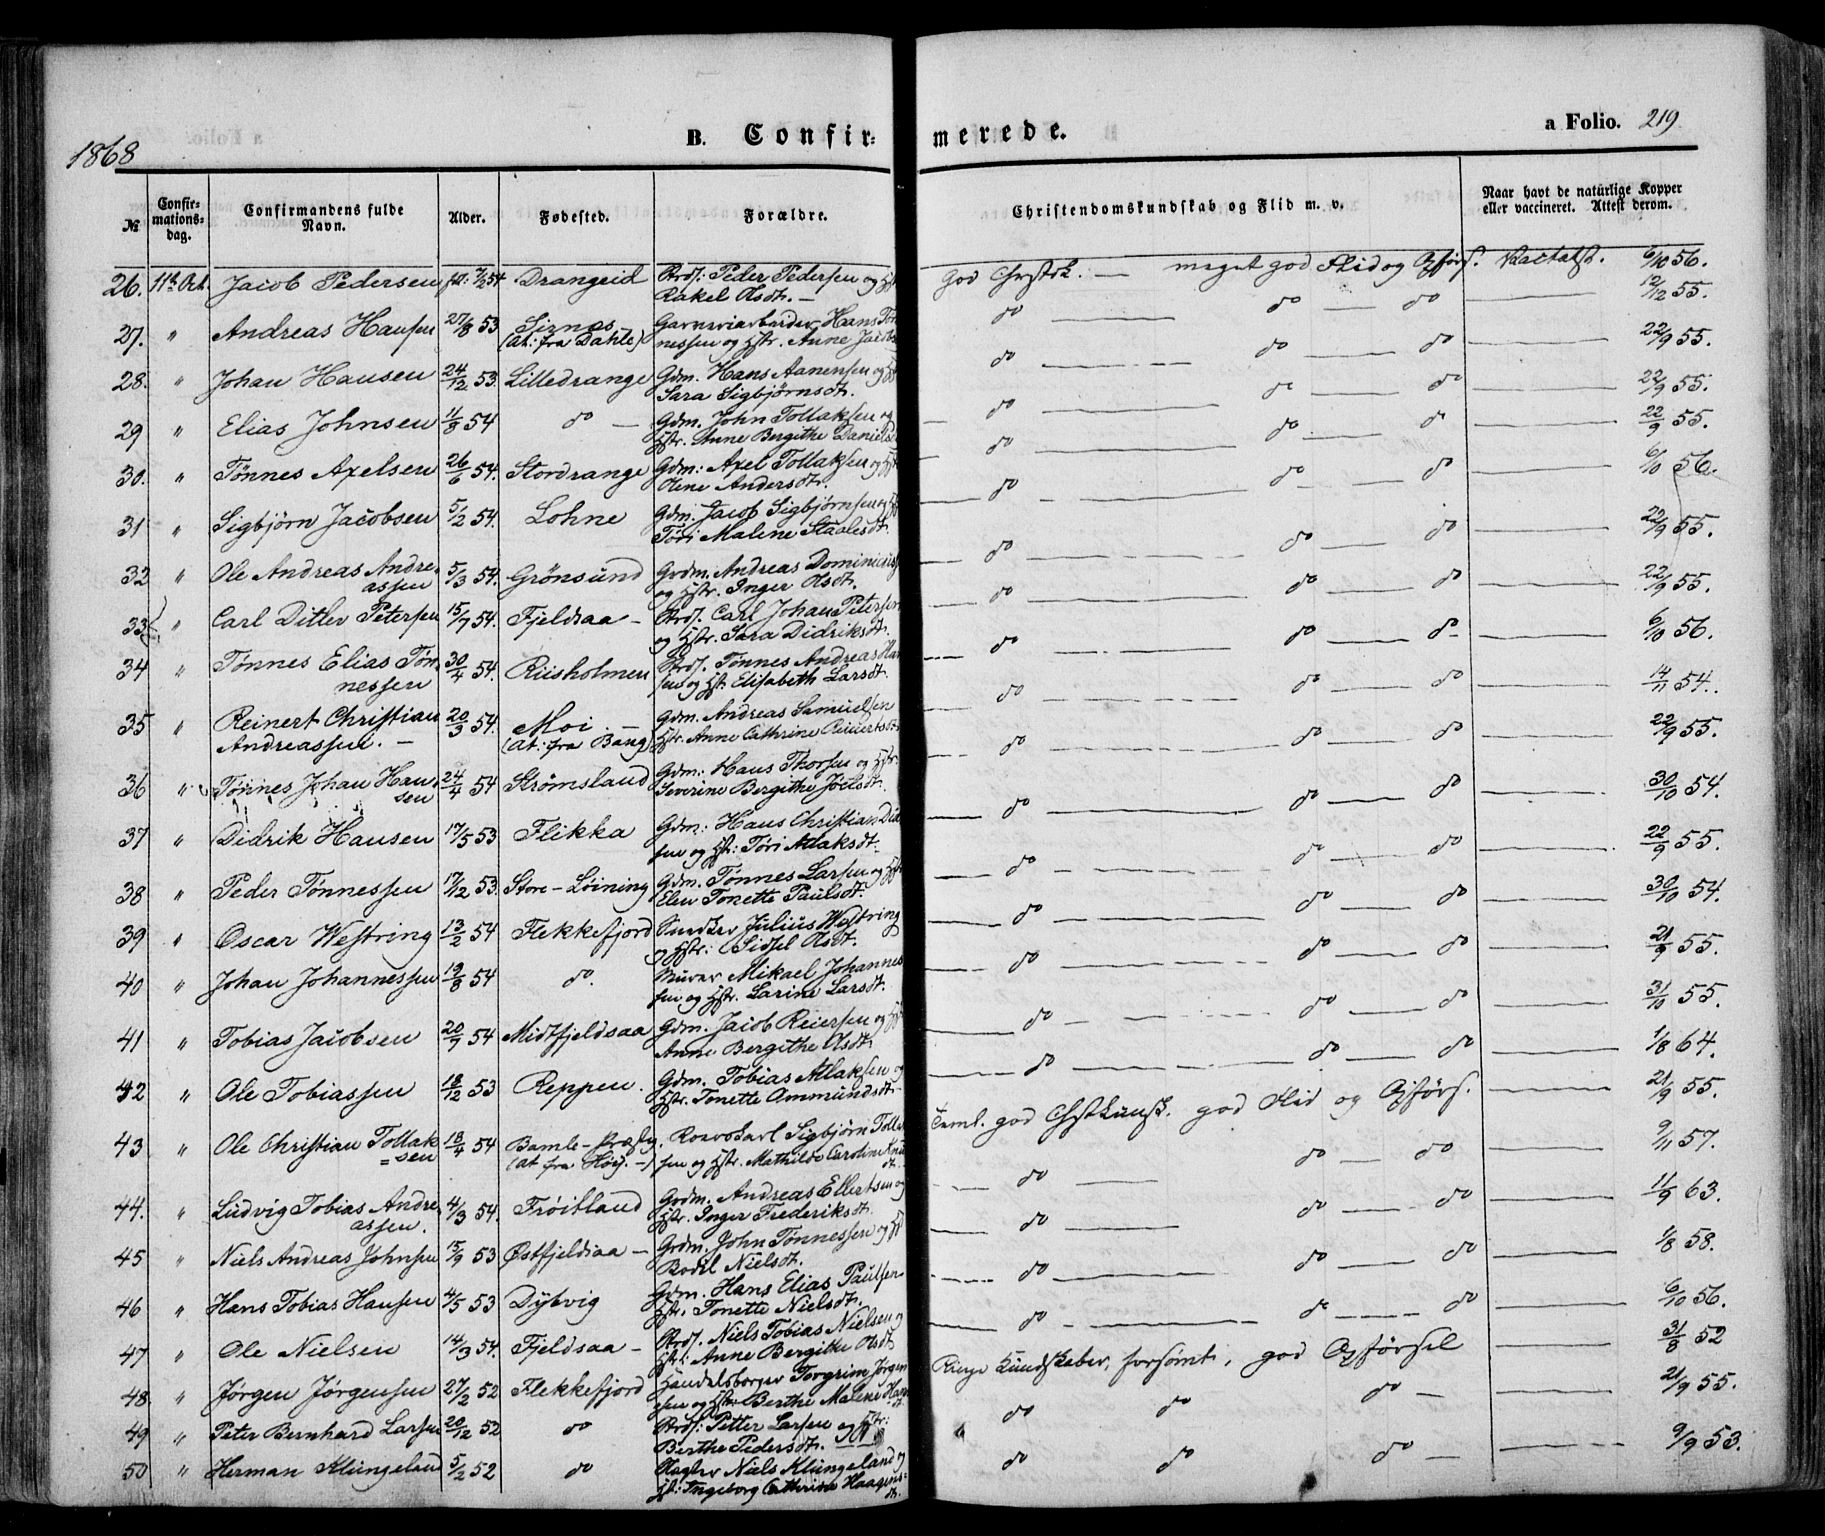 1868
B. Confir-
merede.
a Folio. 219.
No
Confir-
mations-
dag.
Confirmandens fulde
Navn.
Alder.
Fødested.
Forældre.
Christendomskundskab og Flid m. v.
Naar havt de natürlige Kopper
eller vaccineret. Attest derom.
26. 11te Oct. Jacob Pedersen 7/2 54 Drangeid Strds: Peder Pedersen og Hstr
Rakel Olsdt. —
God Chrstk. — meget god Flid og Opførs. Vacc.att. 6/10 56.
27. " Andreas Hansen 27/8 53 Sirnes Garveriarbeider Hans Tøn
(At: fra Dahle) nessen og Hstr. Anne Jacobs
do do do 12/12 55.
28. " Johan Hansen 24/12 53. Lilledrange Gdm. Hans Aanensen og
Sara Sigbjørnsdt.
do do do 22/9 55.
29 " Elias Johnsen 11/8 54 do — Gdm. John Tollaksen og
Hstr. Anne Bergithe Daniels
do do do 22/9 55.
30. " Tønnes Axelsen 26/6 54. Stordrange Gdm: Axel Tollaksen og
Olene Andersdt.
do do do 22/9 55.
31 " Sigbjørn Jacobsen 5/2 54. Lohne Gdm. Jacob Sigbjørnsen og
Tøri Malene Staalesdt.
do do do 6/10 56.
32 " Ole Andreas Andre- 5/3 54. Grønsund Grdm. Andreas Dominicus
assen og Hstr. Inger Olsdt.
do do do 22/9 55.
33 " Carl Ditlev Petersen 15/7 54. Fjeldsaa — Strds. Carl Johan Petersen
og Hstr. Sara Didriksdt.
do do do 22/9 55.
34 " Tønnes Elias Tøn- 30/4 54. Riisholmen Strds. Tønnes Andreas Han
nessen sen og Hst. Elisabeth Larsdt.
do do do 6/10 56.
35 " Reinert Christian 20/3 54. Moi. — Gdm. Andreas Samuelsen
Andreassen. — (At: fra Bang) Hstr. Anne Cathrine Reinerts
do do do 14/11 54.
36 " Tønnes Johan Han- 24/4 54 Strømsland Gdm: Hans Thorsen og Hstr.
sen Severine Bergithe Joelsdt.
do do do 22/9 55.
37 " Didrik Hansen 17/5 53 Flikka Gdm: Hans Christian Did
sen og Hstr: Tøri Atlaksdt.
do do do 30/10 54.
38 " Peder Tønnessen 17/12 53. Store-Løining Gdm. Tønnes Larsen og
Elen Tonette Paulsdt.
do do do 22/9 55.
39 " Oscar Westring 13/2 54 Flekkefjord Snedker Julius Westring
og Hstr: Sidsel Olsdt.
do do do 30/10 54.
40 " Johan Johannessen 19/8 54 do. Murer Mikael Johannes
sen og Hstr. Larine Larsdt.
do do do 21/9 55.
41 " Tobias Jacobsen 20/7 54 Midtfjeldsaa Gdm. Jacob Reiersen og
Anne Bergithe Olsdt.
do do do 31/10 55.
42 " Ole Tobiassen 18/12 53 Reppen. Gdm. Tobias Atlaksen og
Hstr. Tonette Ommundsdt.
do do do 1/8 64.
43 " Ole Christian Tollak- 18/4 54 Bamle-Præstg. Roerskarl Sigbjørn Tolla
sen (At fra Høif.—) sen og Hstr. Mathilde Caroline Knu
dt.
Teml. god Chstkunsk. god Flid og Opførs. 21/9 55.
44. " Ludvig Tobias Andre- 4/3 54. Frøitland Grdm. Andreas Ellertsen og
assen. Hstr. Inger Frederiksdt.
do do do 9/11 57.
45 " Niels Andreas Johnsen 15/9 53 Østfjeldsaa — Grdm. John Tønnessen og
Bodil Nielsdt.
do do do 11/9 63.
46 " Hans Tobias Hansen 4/5 53 Dybvig Gdm. Hans Elias Paulsen
Hstr. Tonette Nielsdt.
do do do 1/8 58.
47 " Ole Nielsen 14/3 54. Fjeldsaa — Strds. Niels Tobias Nielsen og
Hstr: Anne Bergithe Olsdt.
do do do 6/10 56.
48. " Jørgen Jørgensen 27/2 52 Flekkefjord Handelsborger Torgrim Jørgen
sen og Hstr. Berthe Malene Han
dt.
Ringe Kundskaber, forsømt, god Opførsel 31/8 52
49 " Peter Bernhard Larsen 20/12 52 do Strds: Petter Larsen og Hstr:
Berthe Pedersdt.
do do do — 21/9 55.
50 " Herman Klungeland 5/2 52 do Slagter Niels Klungeland og
Hst: Ingeborg Cathrine Haagens-
dt.
do do do — 9/9 53.